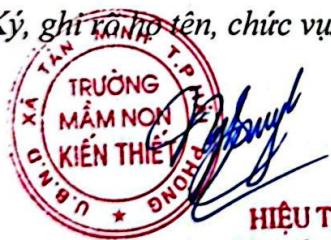 Ký, ghi rõ họ tên, chức vụ
U.B.N.D XÃ TÂN MINH T.P HẢI PHÒNG
TRƯỜNG
MẦM NON
KIẾN THIẾT
★
HIỆU T